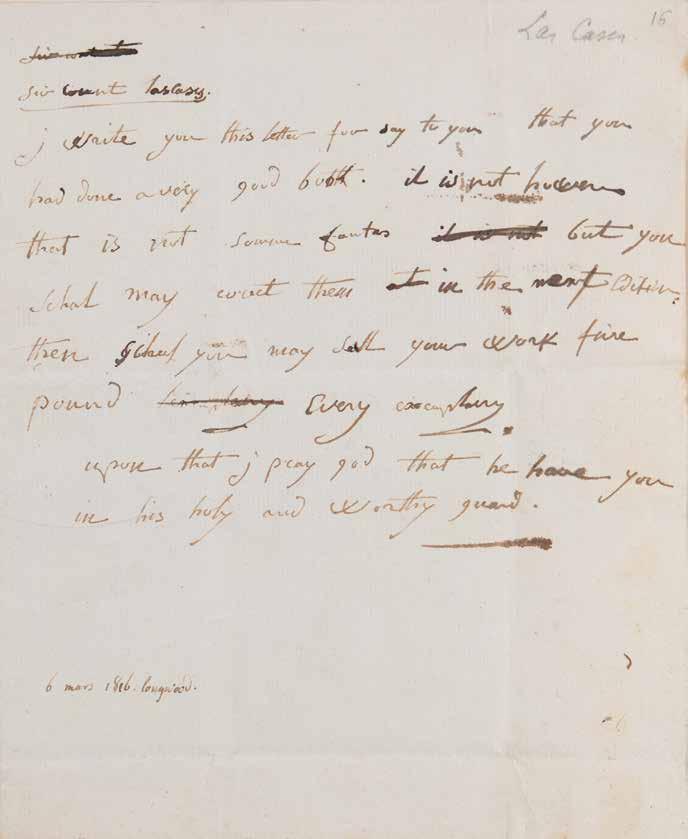 Las Cases 16
sir count
sir count lascases.
j write you this letter for say to you that you
had done a very good boock. it is not however
that is not somme fautes it is not but you
schal may corect them at in the next Edition.
then schal you may sell your work five
pound Every exemplary
upon that j pray god that he have you
in his holy and worthy guard.
6 mars 1816. longwood.